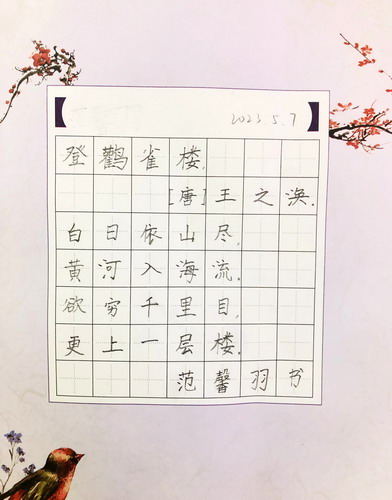 2023.5.7
登鹳雀楼.
[唐]王之涣.
白日依山尽.
黄河入海流.
欲穷千里目.
更上一层楼.
范馨羽书